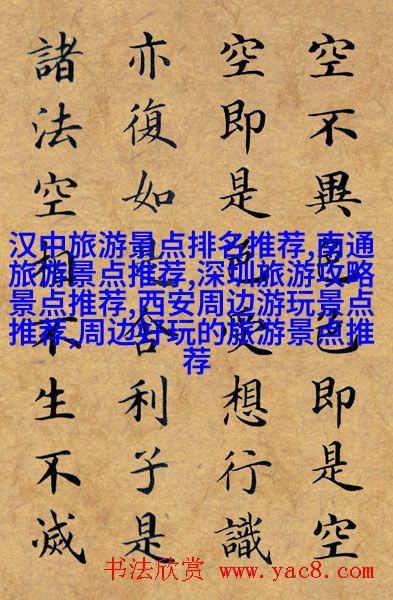 空不異色色即是空
空即是色受想行識
亦復如是舍利子是
諸法空相不生不滅
汉中旅游景点排名推荐,南通
旅游景点推荐,深圳旅游攻略
景点推荐,西安周边游玩景点
推荐,周边好玩的旅游景点推
荐
书法欣赏 www.yac8.com